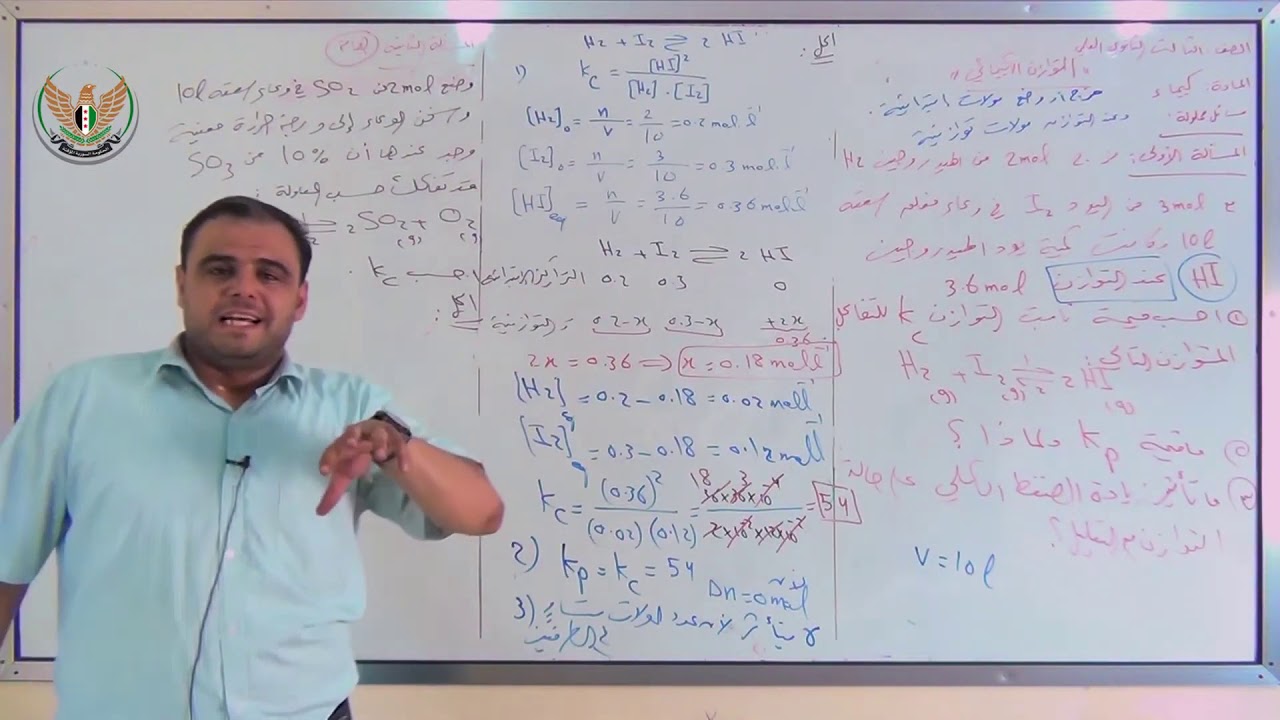 الصف: الثالث الثانوي العلمي
"التوازن الكيميائي"
المادة: كيمياء
مسائل محلولة:
المسألة الأولى: 2mol من الهيدروجين H₂
3mol من اليود I₂ في وعاء مغلق سعته
10l وكانت كمية يود الهيدروجين
HI عند التوازن 3.6 mol
① احسب قيمة ثابت التوازن Kc للتفاعل
المتوازن التالي:
H₂(g) + I₂(g) ⇌ 2HI(g)
② ماقيمة Kp ولماذا؟
③ ما تأثير زيادة الضغط الكلي على حالة
التوازن مع التعليل؟
V = 10l
الحل:
H₂ + I₂ ⇌ 2HI
1) Kc = [HI]² / [H₂].[I₂]
[H₂]₀ = n/V = 2/10 = 0.2 mol.l⁻¹
[I₂]₀ = n/V = 3/10 = 0.3 mol.l⁻¹
[HI]eq = n/V = 3.6/10 = 0.36 mol.l⁻¹
H₂ + I₂ ⇌ 2HI
التراكيز الابتدائية 0.2 0.3 0
التوازنية 0.2-x 0.3-x +2x
0.36
2x = 0.36 ⟹ x = 0.18 mol.l⁻¹
[H₂]eq = 0.2 - 0.18 = 0.02 mol.l⁻¹
[I₂]eq = 0.3 - 0.18 = 0.12 mol.l⁻¹
Kc = (0.36)² / (0.02)(0.12) = 36×36×10⁻⁴ / 2×10⁻²×12×10⁻² = 54
18 3
2) Kp = Kc = 54
لأن Δn = 0 mol
3) لا يتأثر لأن عدد المولات متساوٍ
في الطرفين
المسألة الثانية: (هام)
وضع 2mol من SO₃ في وعاء سعته 10l
وسخن الوعاء إلى درجة حرارة معينة
وجد عندها أن 10% من SO₃
قد تفكك حسب المعادلة:
⇌ 2SO₂(g) + O₂(g)
احسب Kc.
الحل: